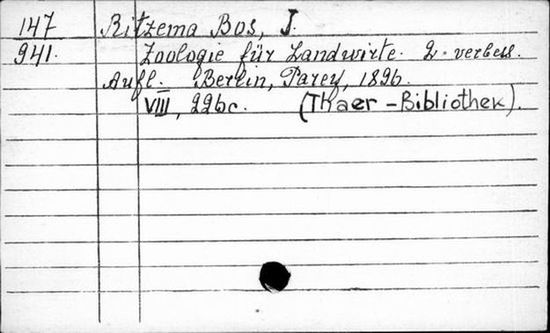 147 Ritzema Bos, J.
941. Zoologie für Landwirte. 2. verbess.
Aufl. Berlin, Parey, 1896.
VIII, 226 c. (Thaer-Bibliothek).